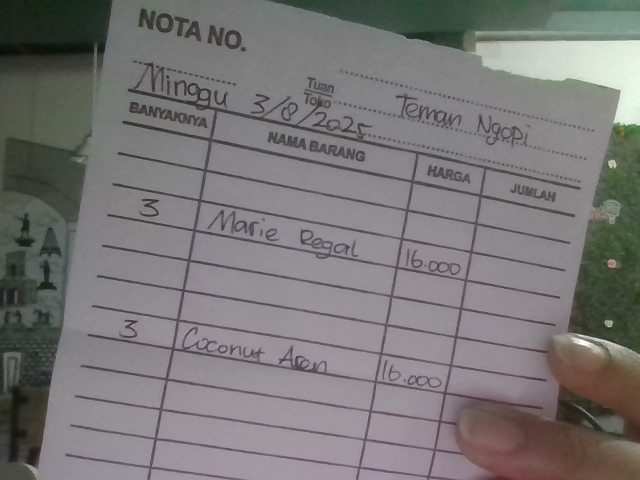 NOTA NO.
Minggu 3/8/2025
Tuan
Toko
Teman Ngopi
BANYAKNYA NAMA BARANG HARGA JUMLAH
3 Marie Regal 16.000
3 Coconut Aren 16.000